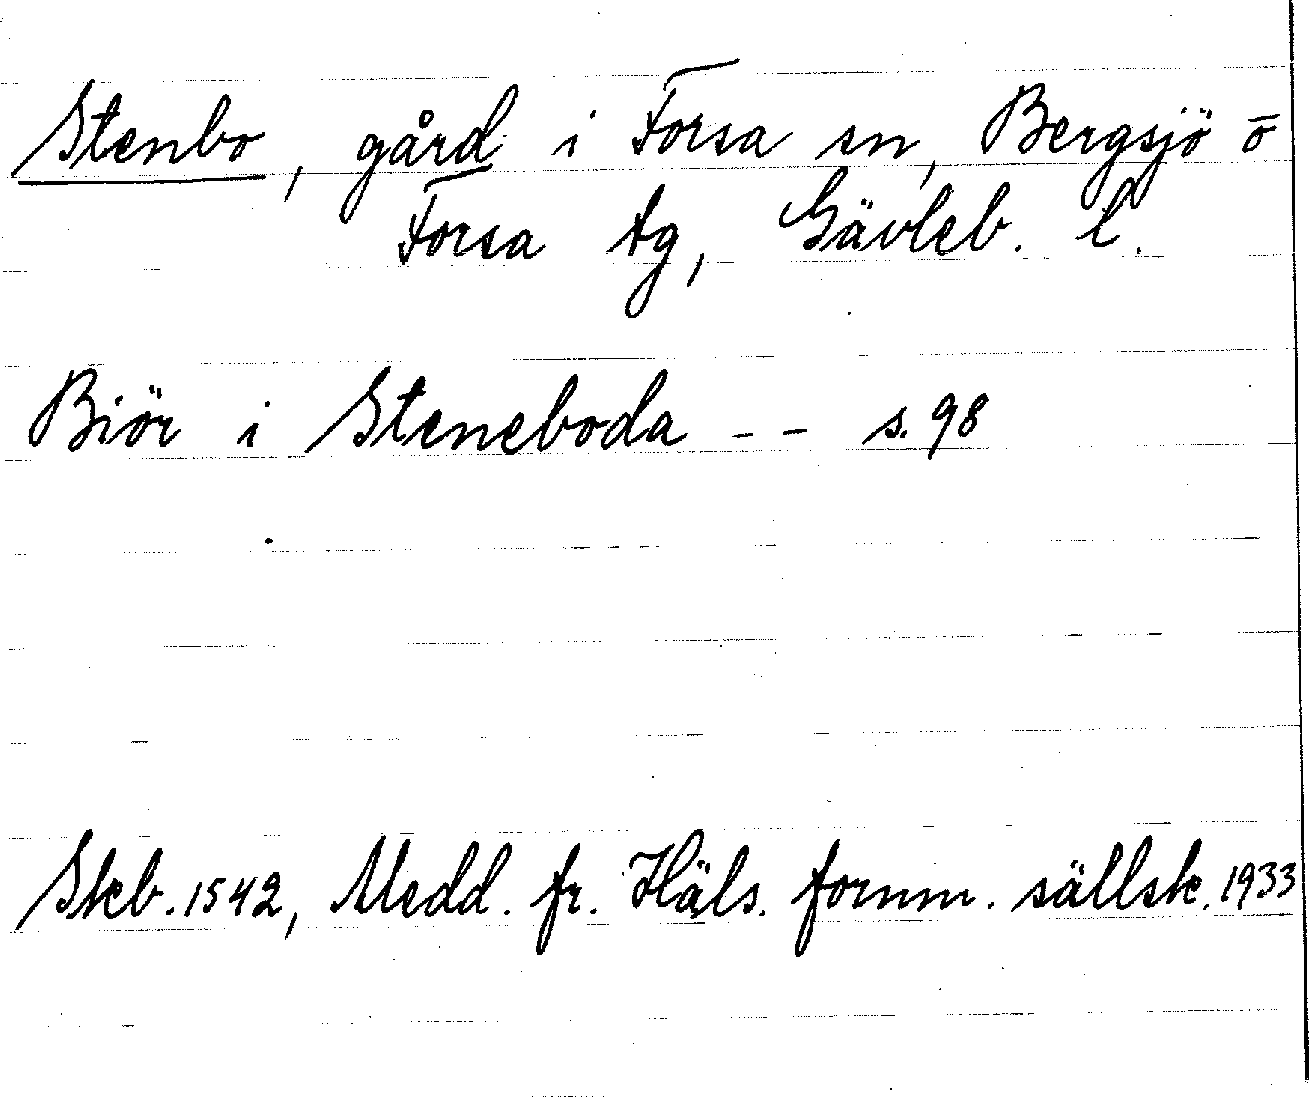 Stenbo, gård i Forsa sn, Bergsjö o
Forsa tg, Gävleb. l.
Biör i Steneboda - - s. 98
Skb. 1542, Medd. fr. Häls. fornm. sällsk. 1933